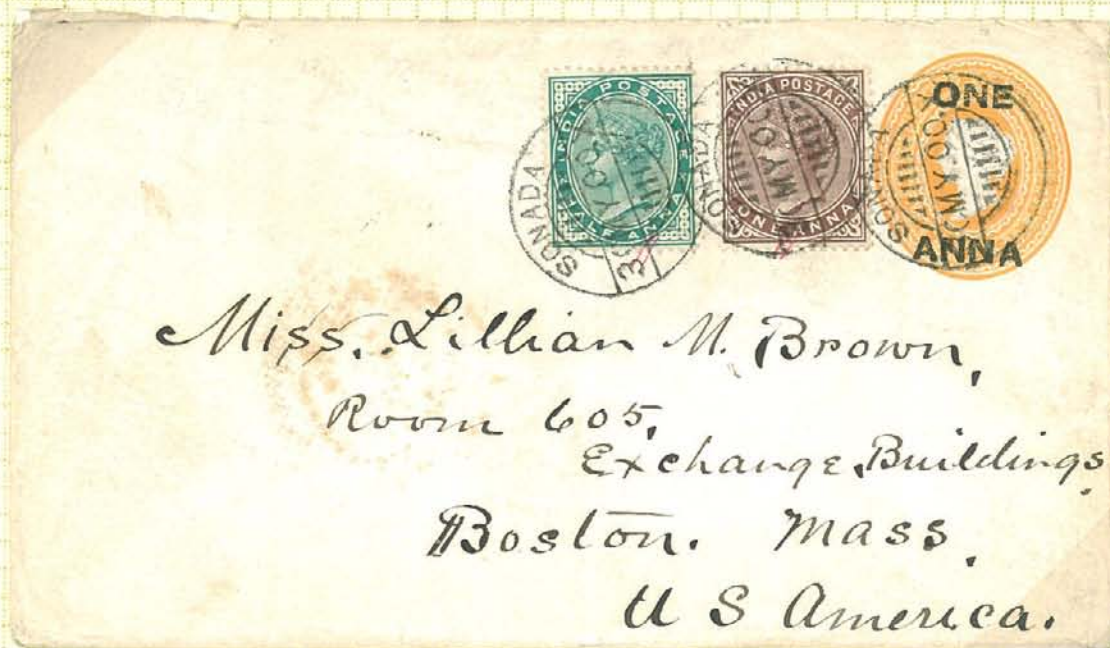 INDIA POSTAGE
HALF ANNA
INDIA POSTAGE
ONE ANNA
ONE
ANNA
SONADA
SONADA
SONADA
MY 00
MY 00
Miss. Lillian M. Brown,
Room 605,
Exchange Buildings,
Boston. Mass,
U S America.